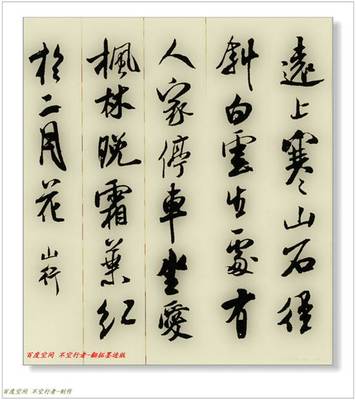 遠上寒山石徑
斜白雲生處有
人家停車坐愛
楓林晚霜葉紅
於二月花 山行
百度空间 不空行者-翻拓墨迹版
百度空间 不空行者-制作